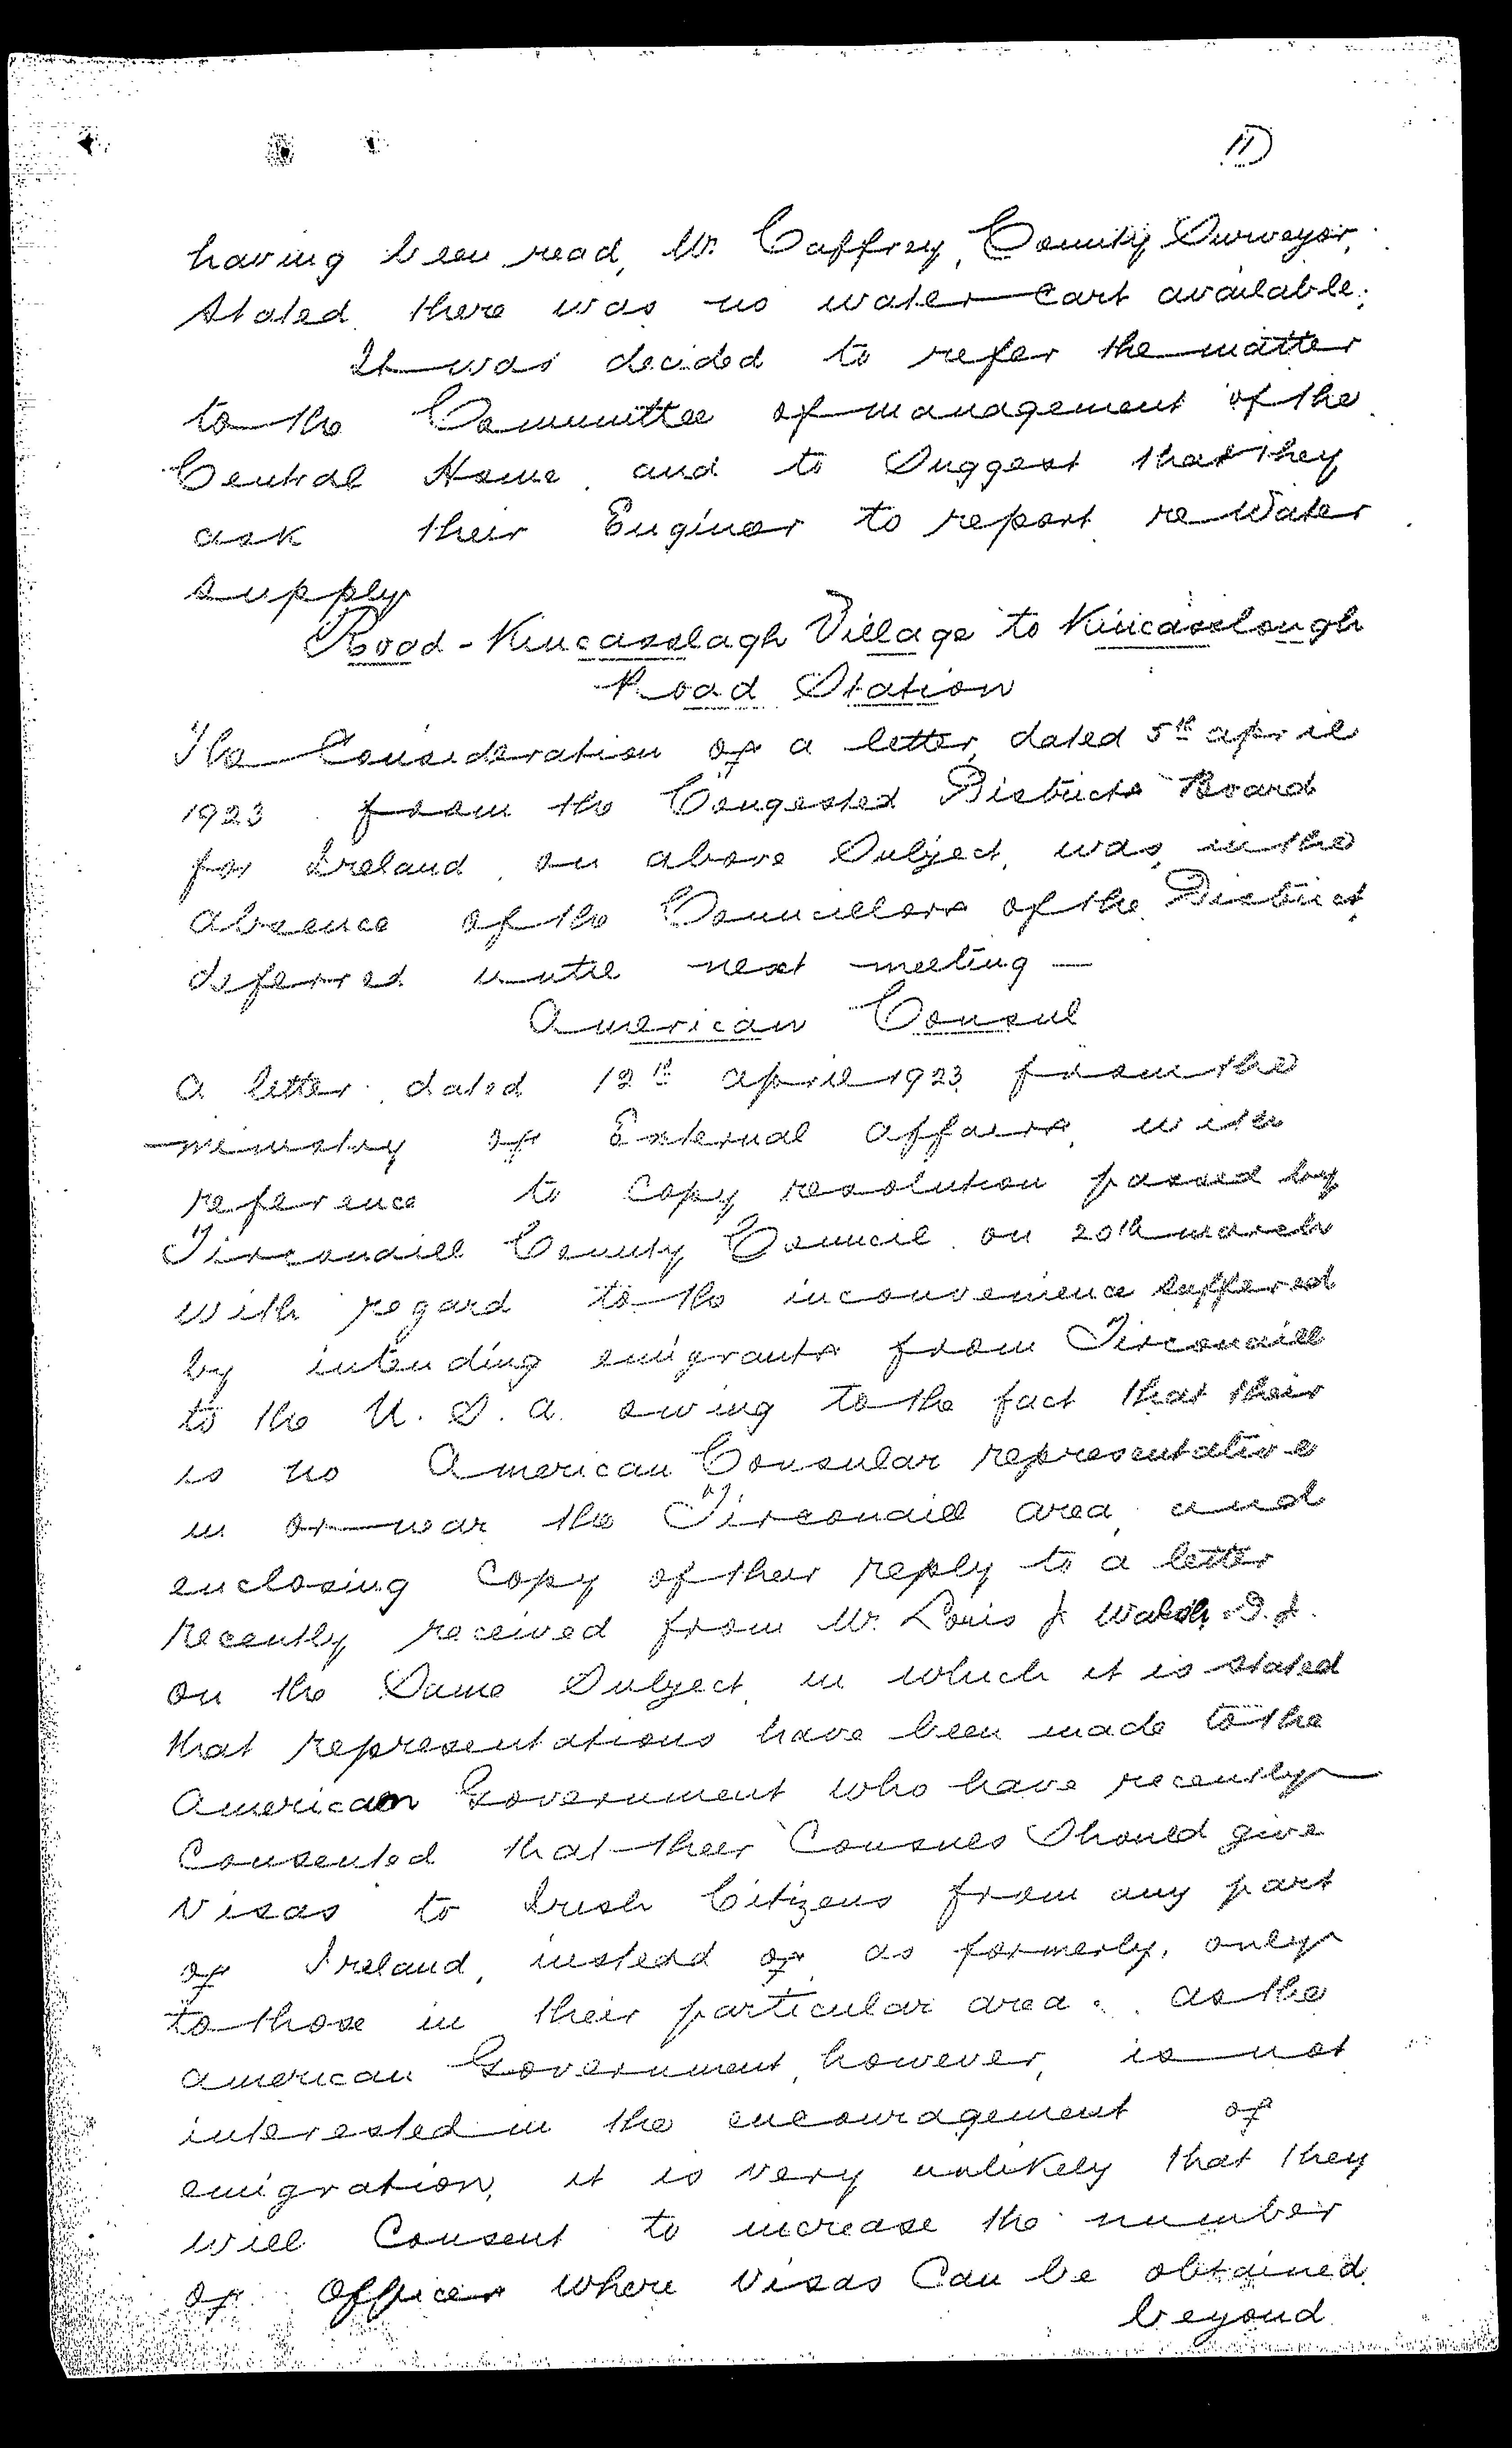 11)
having been read, Mr. Caffrey, County Surveyor,
stated there was no water cart available.
It was decided to refer the matter
to the Committee of management of the
Central Home and to Suggest that they
ask their Enginer to report re Water
supply
Road - Kincasslagh Village to Kincasslough
Road Station
The Consideration of a letter, dated 5th april
1923 from the Congested Districts Board
for Ireland on above Subject, was, in the
absence of the Councillors of the District,
deferred until next meeting —
American Consul
A letter dated 12th april 1923 from the
ministry of External Affairs, with
reference to Copy resolution passed by
Tirconaill County Council on 20th march
with regard to the inconvenience suffered
by intending emigrants from Tirconaill
to the U. S. A. owing to the fact that their
is no American Consular representative
in or near the Tirconaill area, and
enclosing Copy of their reply to a letter
recently received from Mr. Louis J. Walsh, D.J.
on the Same Subject in which it is stated
that representations have been made to the
American Government who have recently
Consented that their Consuls Should give
visas to Irish Citizens from any part
of Ireland, instead of, as formerly, only
to those in their particular area. As the
american Government, however, is not
interested in the encouragement of
emigration, it is very unlikely that they
will Consent to increase the number
of Offices where visas Can be obtained
beyond